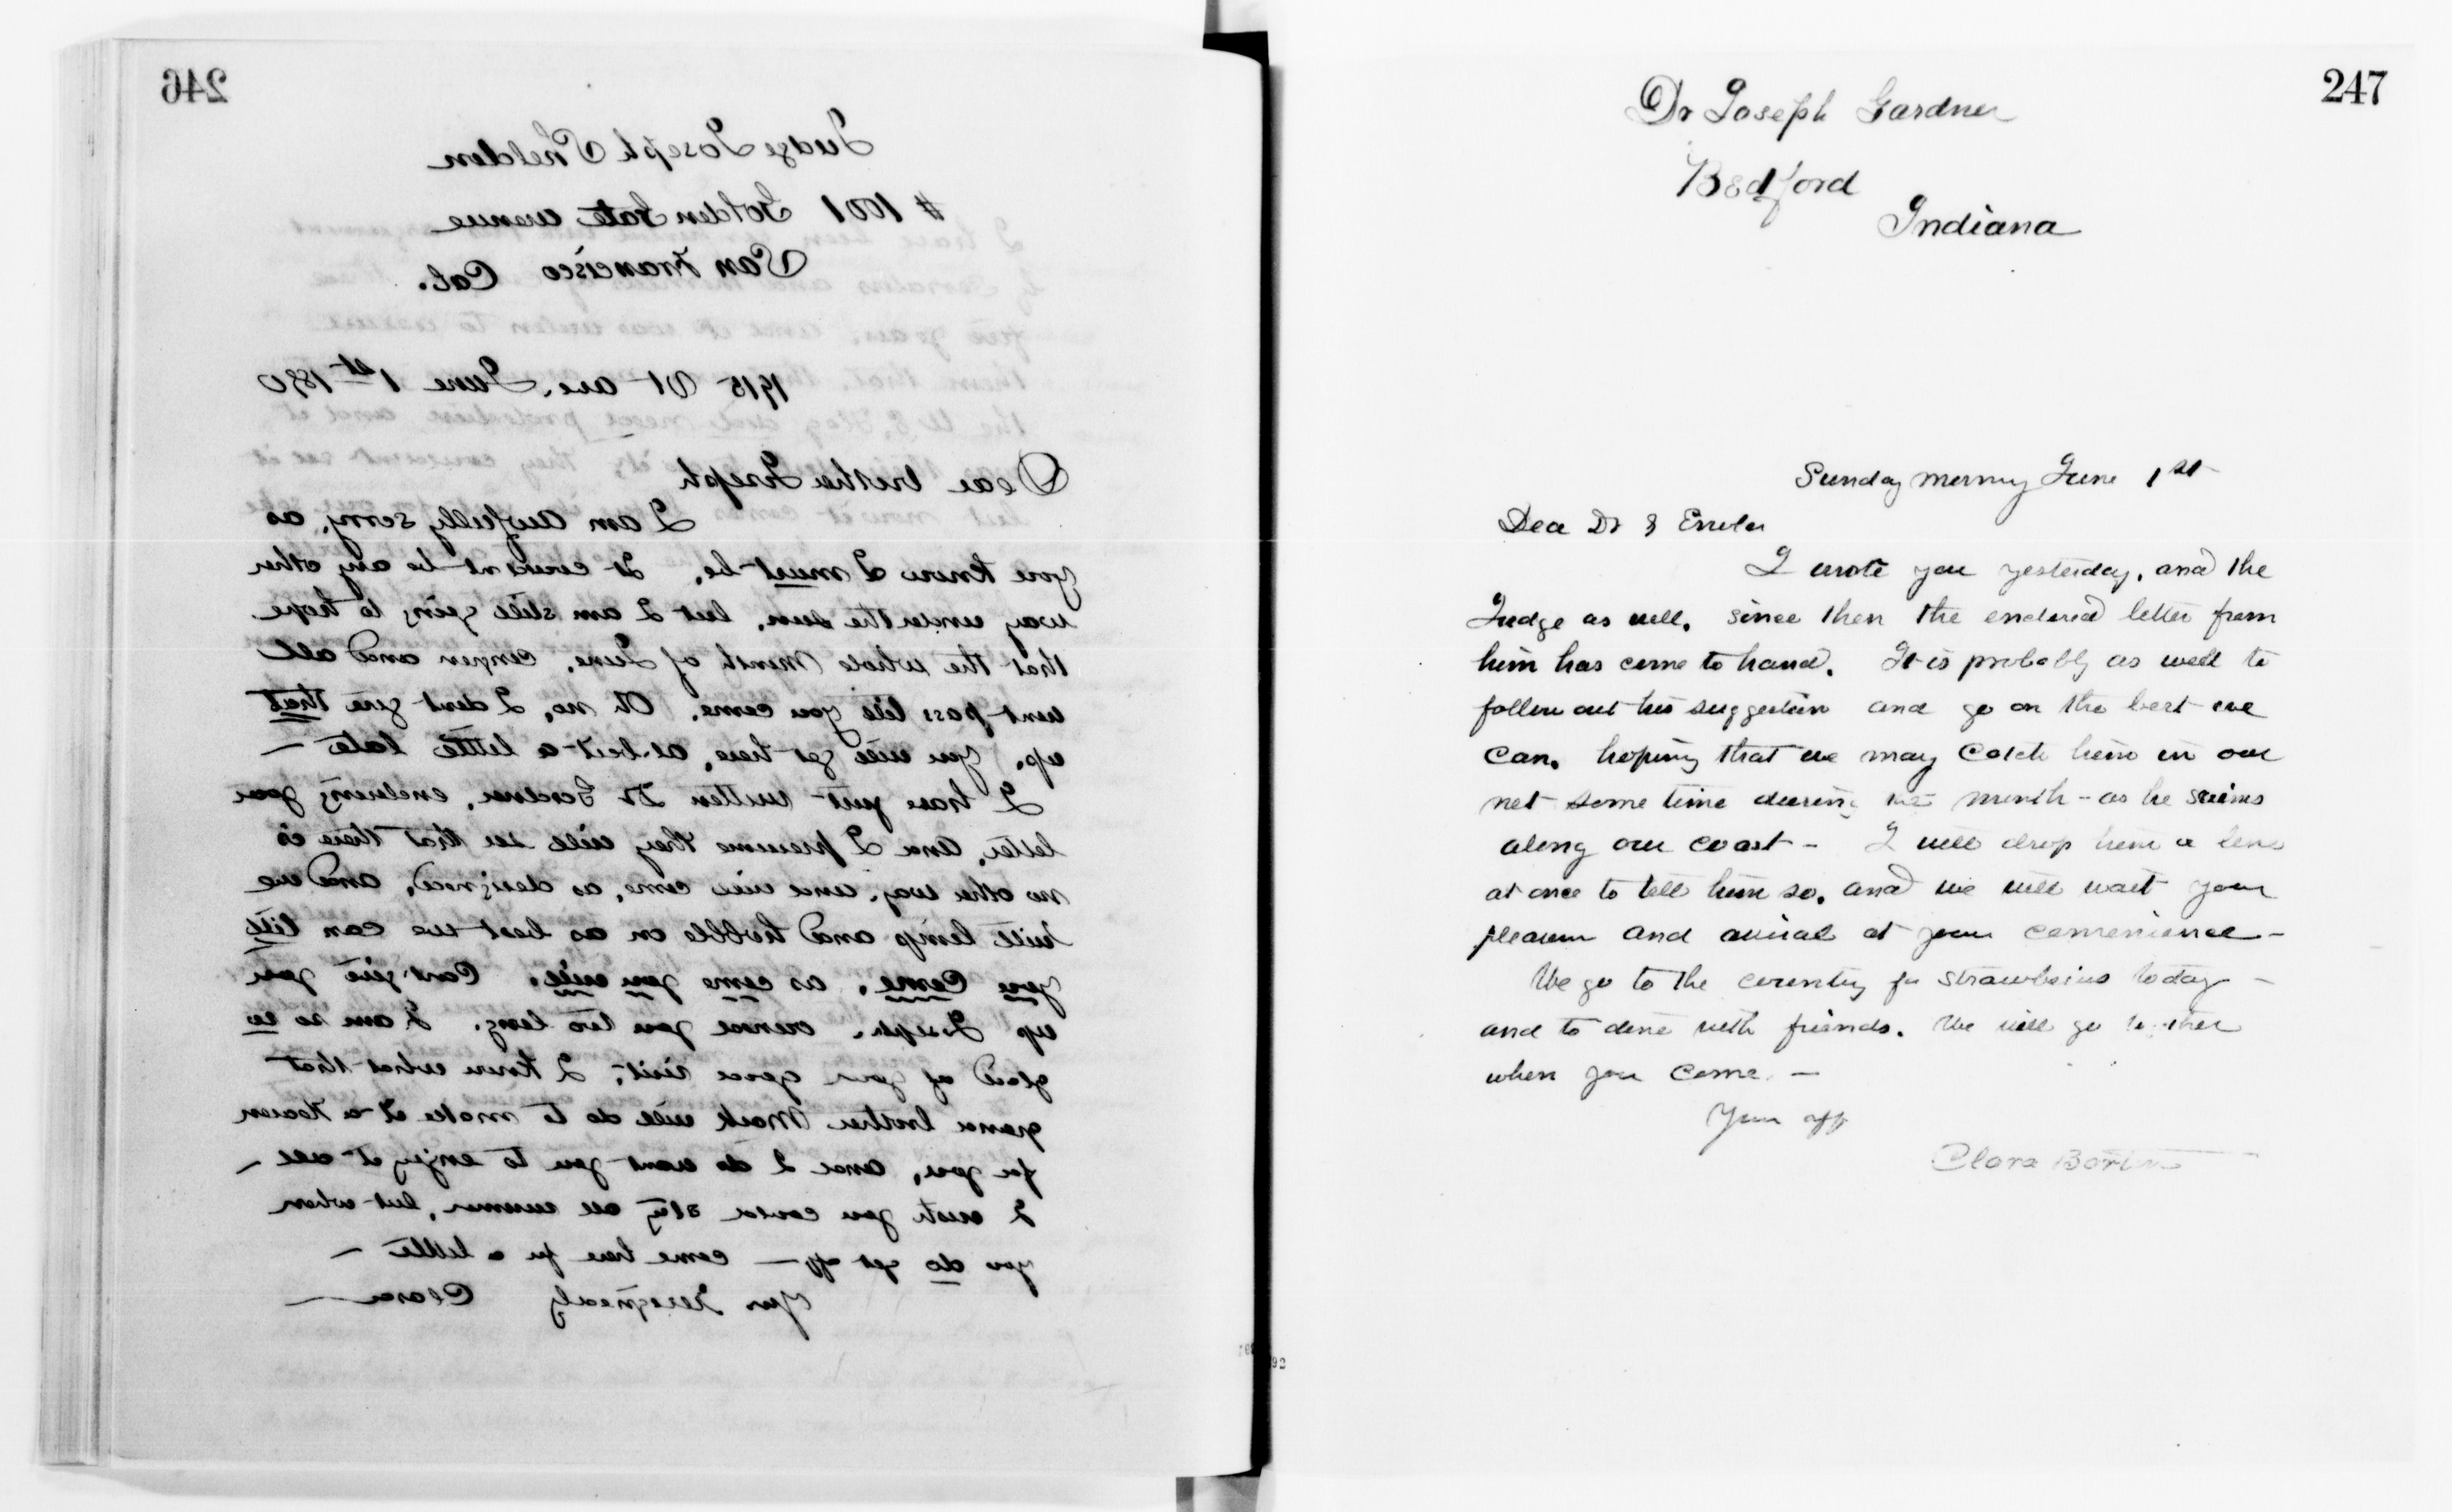 246
Judge Joseph Sheldon
# 1001 Golden Gate avenue
San Francisco Cal.
1915 Vt ave. June 1st 1890
Dear brother Joseph
I am awfully sorry, as
you know I must be. It couldn't be any other
way under the sun, but I am still going to hope
that the whole month of June, and all
wont pass till you come. Oh no, I dont give that
up. You will get here, al-beit a little late —
I have just written Dr Gardner, enclosing your
letter, and I presume they will see that there is
no other way, and will come, as designed, and we
will limp and hobble on as best we can till
you come, as come you will. Cant give you
up Joseph. you too long. I am so so
glad of your good visit, I know what that
grand brother Mark will do to make it a Heaven
for you, and I do want you to enjoy it all —
I wish you could stay all summer, but when
you do get off — come here for a little —
Yours Clara —
247
Dr Joseph Gardner
Bedford
Indiana
Sunday morning June 1st
Dear Dr &
I wrote you yesterday, and the
Judge as well. Since then the enclosed letter from
him has come to hand. It is probably as well to
follow out his suggestion and go on the best we
can. hoping that we may catch him in our
net some time during the month - as he swims
along our coast - I will drop him a line
at once to tell him so. and we will wait your
pleasure and arrival at your convenience -
We go to the country for strawberries today -
and to dine with friends. We will go together
when you come. —
Your aff
Clara Barton